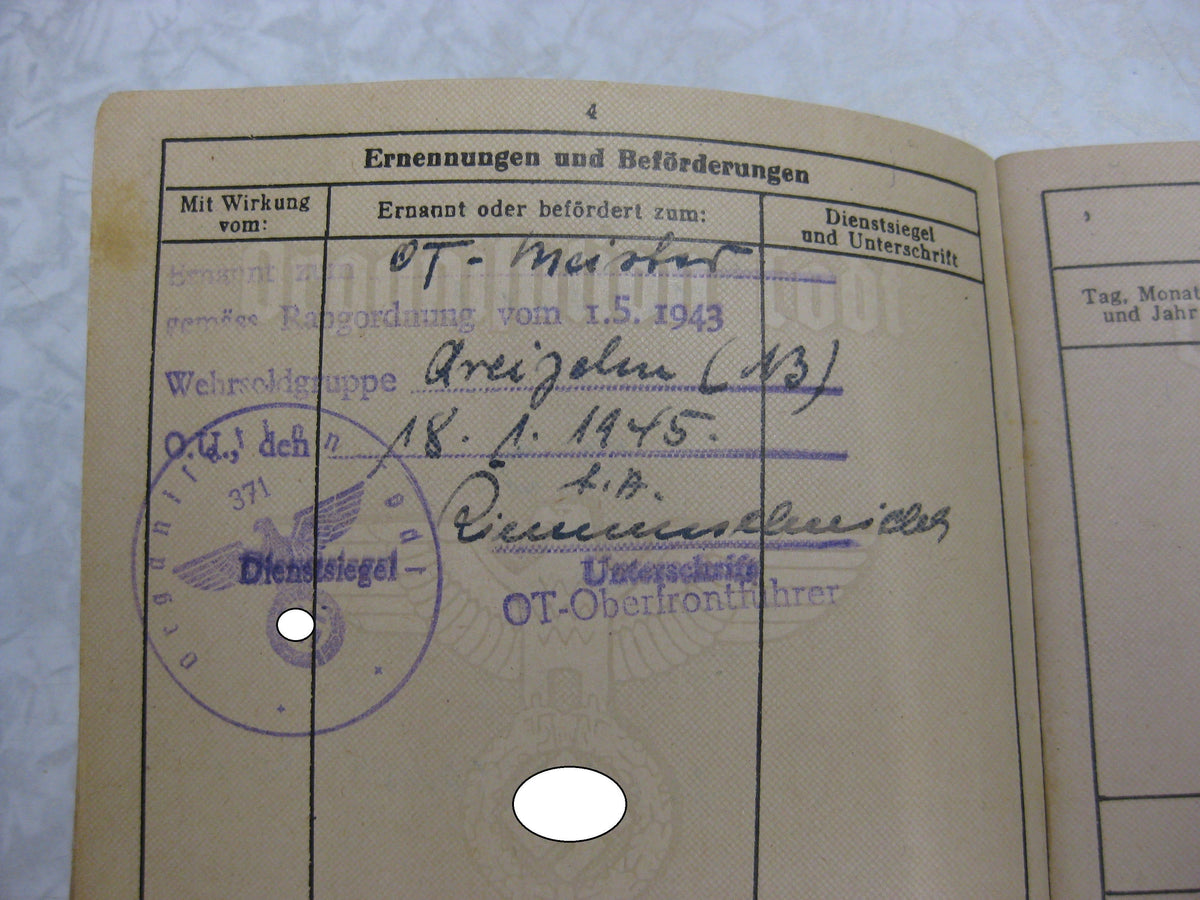 4
Ernennungen und Beförderungen
Mit Wirkung vom:
Ernannt oder befördert zum:
Dienstsiegel und Unterschrift
Organisation Todt
Ernannt zum OT- Meister
gemäss Rangordnung vom 1.5. 1943
Wehrsoldgruppe dreizehn (13)
O.U., den 18. 1. 1945.
Organisation Todt
371
Dienstsiegel
Unterschrift
OT-Oberfrontführer
Tag, Monat
und Jahr